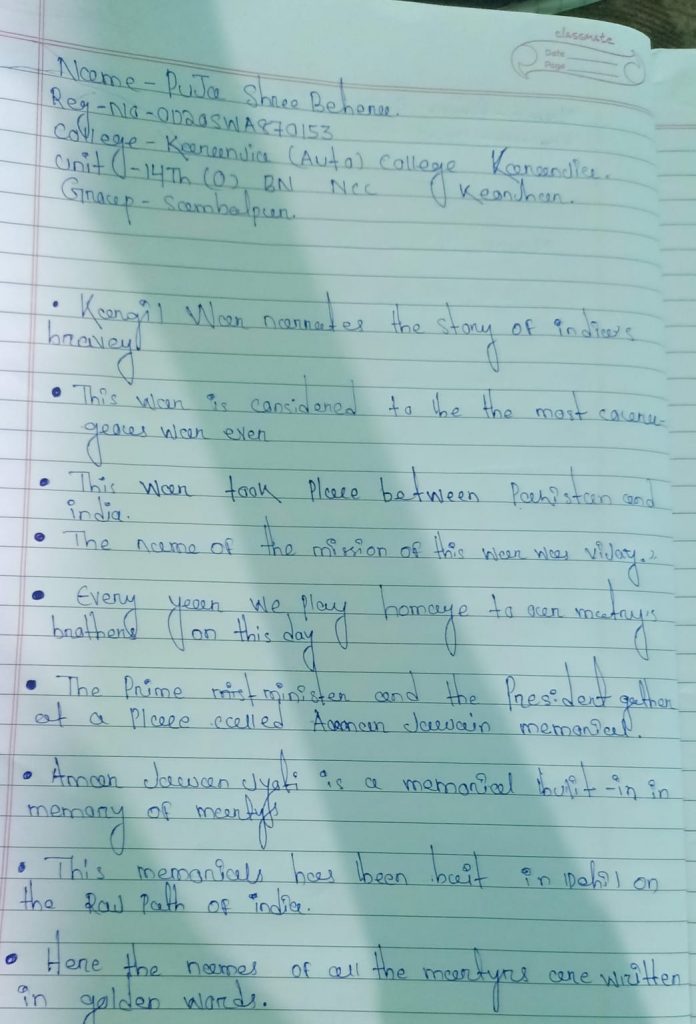 classmate
Date
Page
Name - Puja Shree Behera.
Reg - No - OD20SWA870153
College - Karanjia (Auto) College Karanjia.
Unit - 14Th (O) BN NCC Keonjhar.
Group - Sambalpur.
• Kargil War narrates the story of india's
bravey
• This war is considered to be the most coura-
geaes war ever
• This war took Place between Pakistan and
india.
• The name of the mission of this war was vijay.
• Every year we Play homaye to our matry's
brothers on this day
• The Prime minister and the President gather
at a Place called Aaman Jawain memorical.
• Aman Jawan Jyoti is a memorical bulit-in in
memory of martys
• This memoricals has been bait in Dehil on
the Raj Path of india.
• Here the names of all the martyrs are written
in golden words.